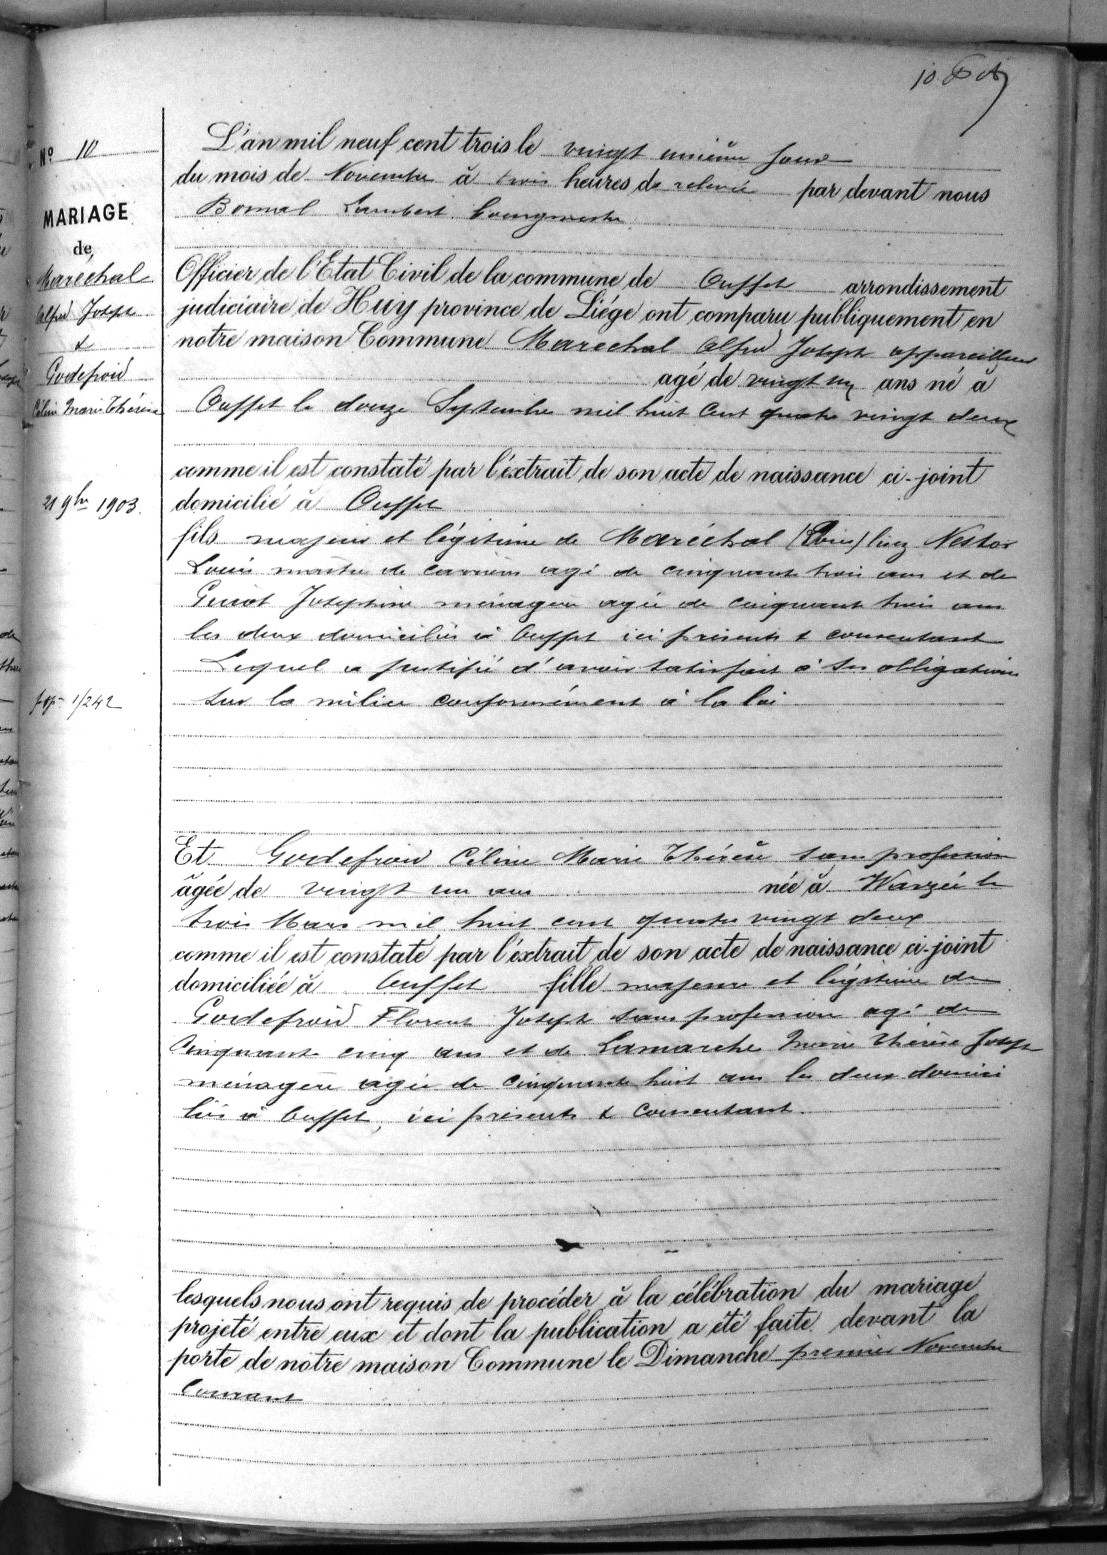 10
Nº 10
MARIAGE
de
Maréchal
Alfred Joseph
&
Godefroid
Céline Marie Thérèse
21 9bre 1903.
1/242
L'an mil neuf cent trois le vingt unième jour
du mois de Novembre à trois heures de relevée par devant nous
Bomal Lambert bourgmestre
Officier de l'Etat Civil de la commune de Ouffet arrondissement
judiciaire de Huy province de Liége ont comparu publiquement en
notre maison Commune Maréchal Alfred Joseph appareilleur
agé de vingt un ans né à
Ouffet le douze Septembre mil huit cent quatre vingt deux
comme il est constaté par l'éxtrait de son acte de naissance ci-joint
domicilié à Ouffet
fils majeur et légitime de Maréchal Nestor
Louis maître de carrières agé de cinquante trois ans et de
Joséphine ménagère agée de cinquante trois ans
les deux domiciliés à Ouffet ici présents & consentant
Lequel a justifié d'avoir satisfait à ses obligations
sur la milice conformément à la loi
Et Godefroid Céline Marie Thérèse sans profession
âgée de vingt un ans née à Warzée le
trois Mars mil huit cent quatre vingt deux
comme il est constaté par l'éxtrait de son acte de naissance ci-joint
domiciliée à Ouffet fille majeure et légitime de
Godefroid Florent Joseph sans profession agé de
cinquante cinq ans et de Lamarche Marie Thérèse Joseph
ménagère agée de cinquante huit ans les deux domici
liés à Ouffet, ici présents & consentant.
lesquels nous ont requis de procéder à la célébration du mariage
projeté entre eux et dont la publication a été faite devant la
porte de notre maison Commune le Dimanche premier Novembre
Courant